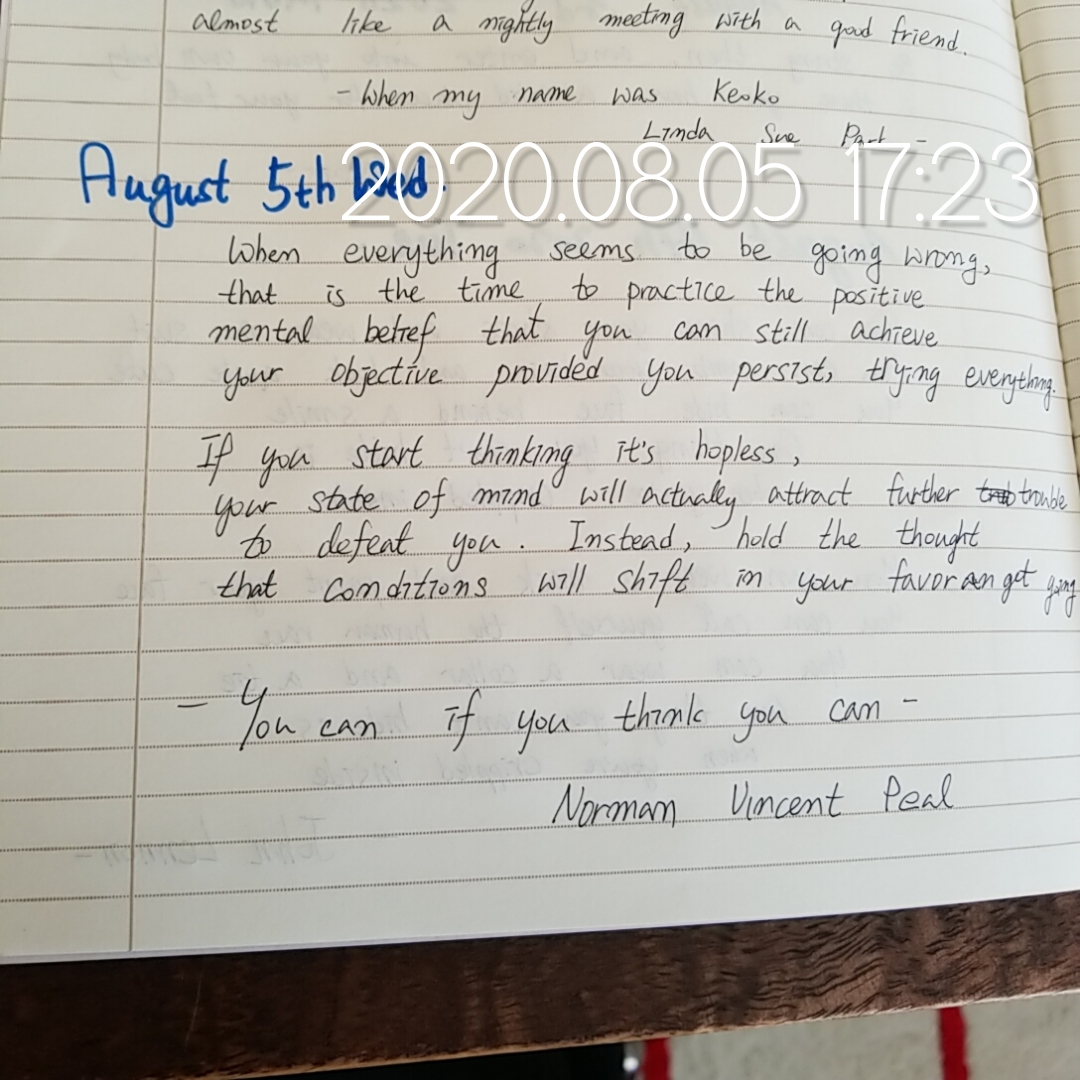 almost like a nightly meeting with a good friend.
- When my name was Keoko
Linda Sue Part -
August 5th Wed.
2020.08.05 17:23
When everything seems to be going wrong,
that is the time to practice the positive
mental belief that you can still achieve
your objective provided you persist, trying everything.
If you start thinking it's hopless,
your state of mind will actually attract further trouble
to defeat you. Instead, hold the thought
that conditions will shift in your favor an get going
- You can if you think you can -
Norman Vincent Peal